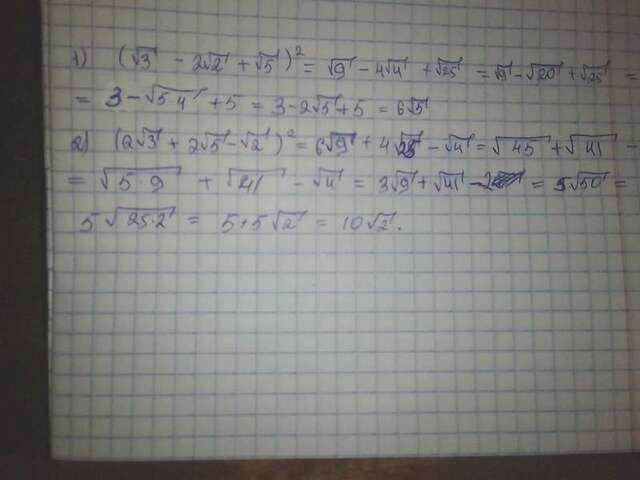 1) (√3 - 2√2 + √5)² = √9 - 4√4 + √25 = √9 - √20 + √25 =
= 3 - √5·4 + 5 = 3 - 2√5 + 5 = 6√5
2) (2√3 + 2√5 - √2)² = 6√9 + 4√25 - √4 = √45 + √41 -
= √5·9 + √41 - √4 = 3√9 + √41 - 2 = 5√50 =
5√25·2 = 5+5√2 = 10√2.